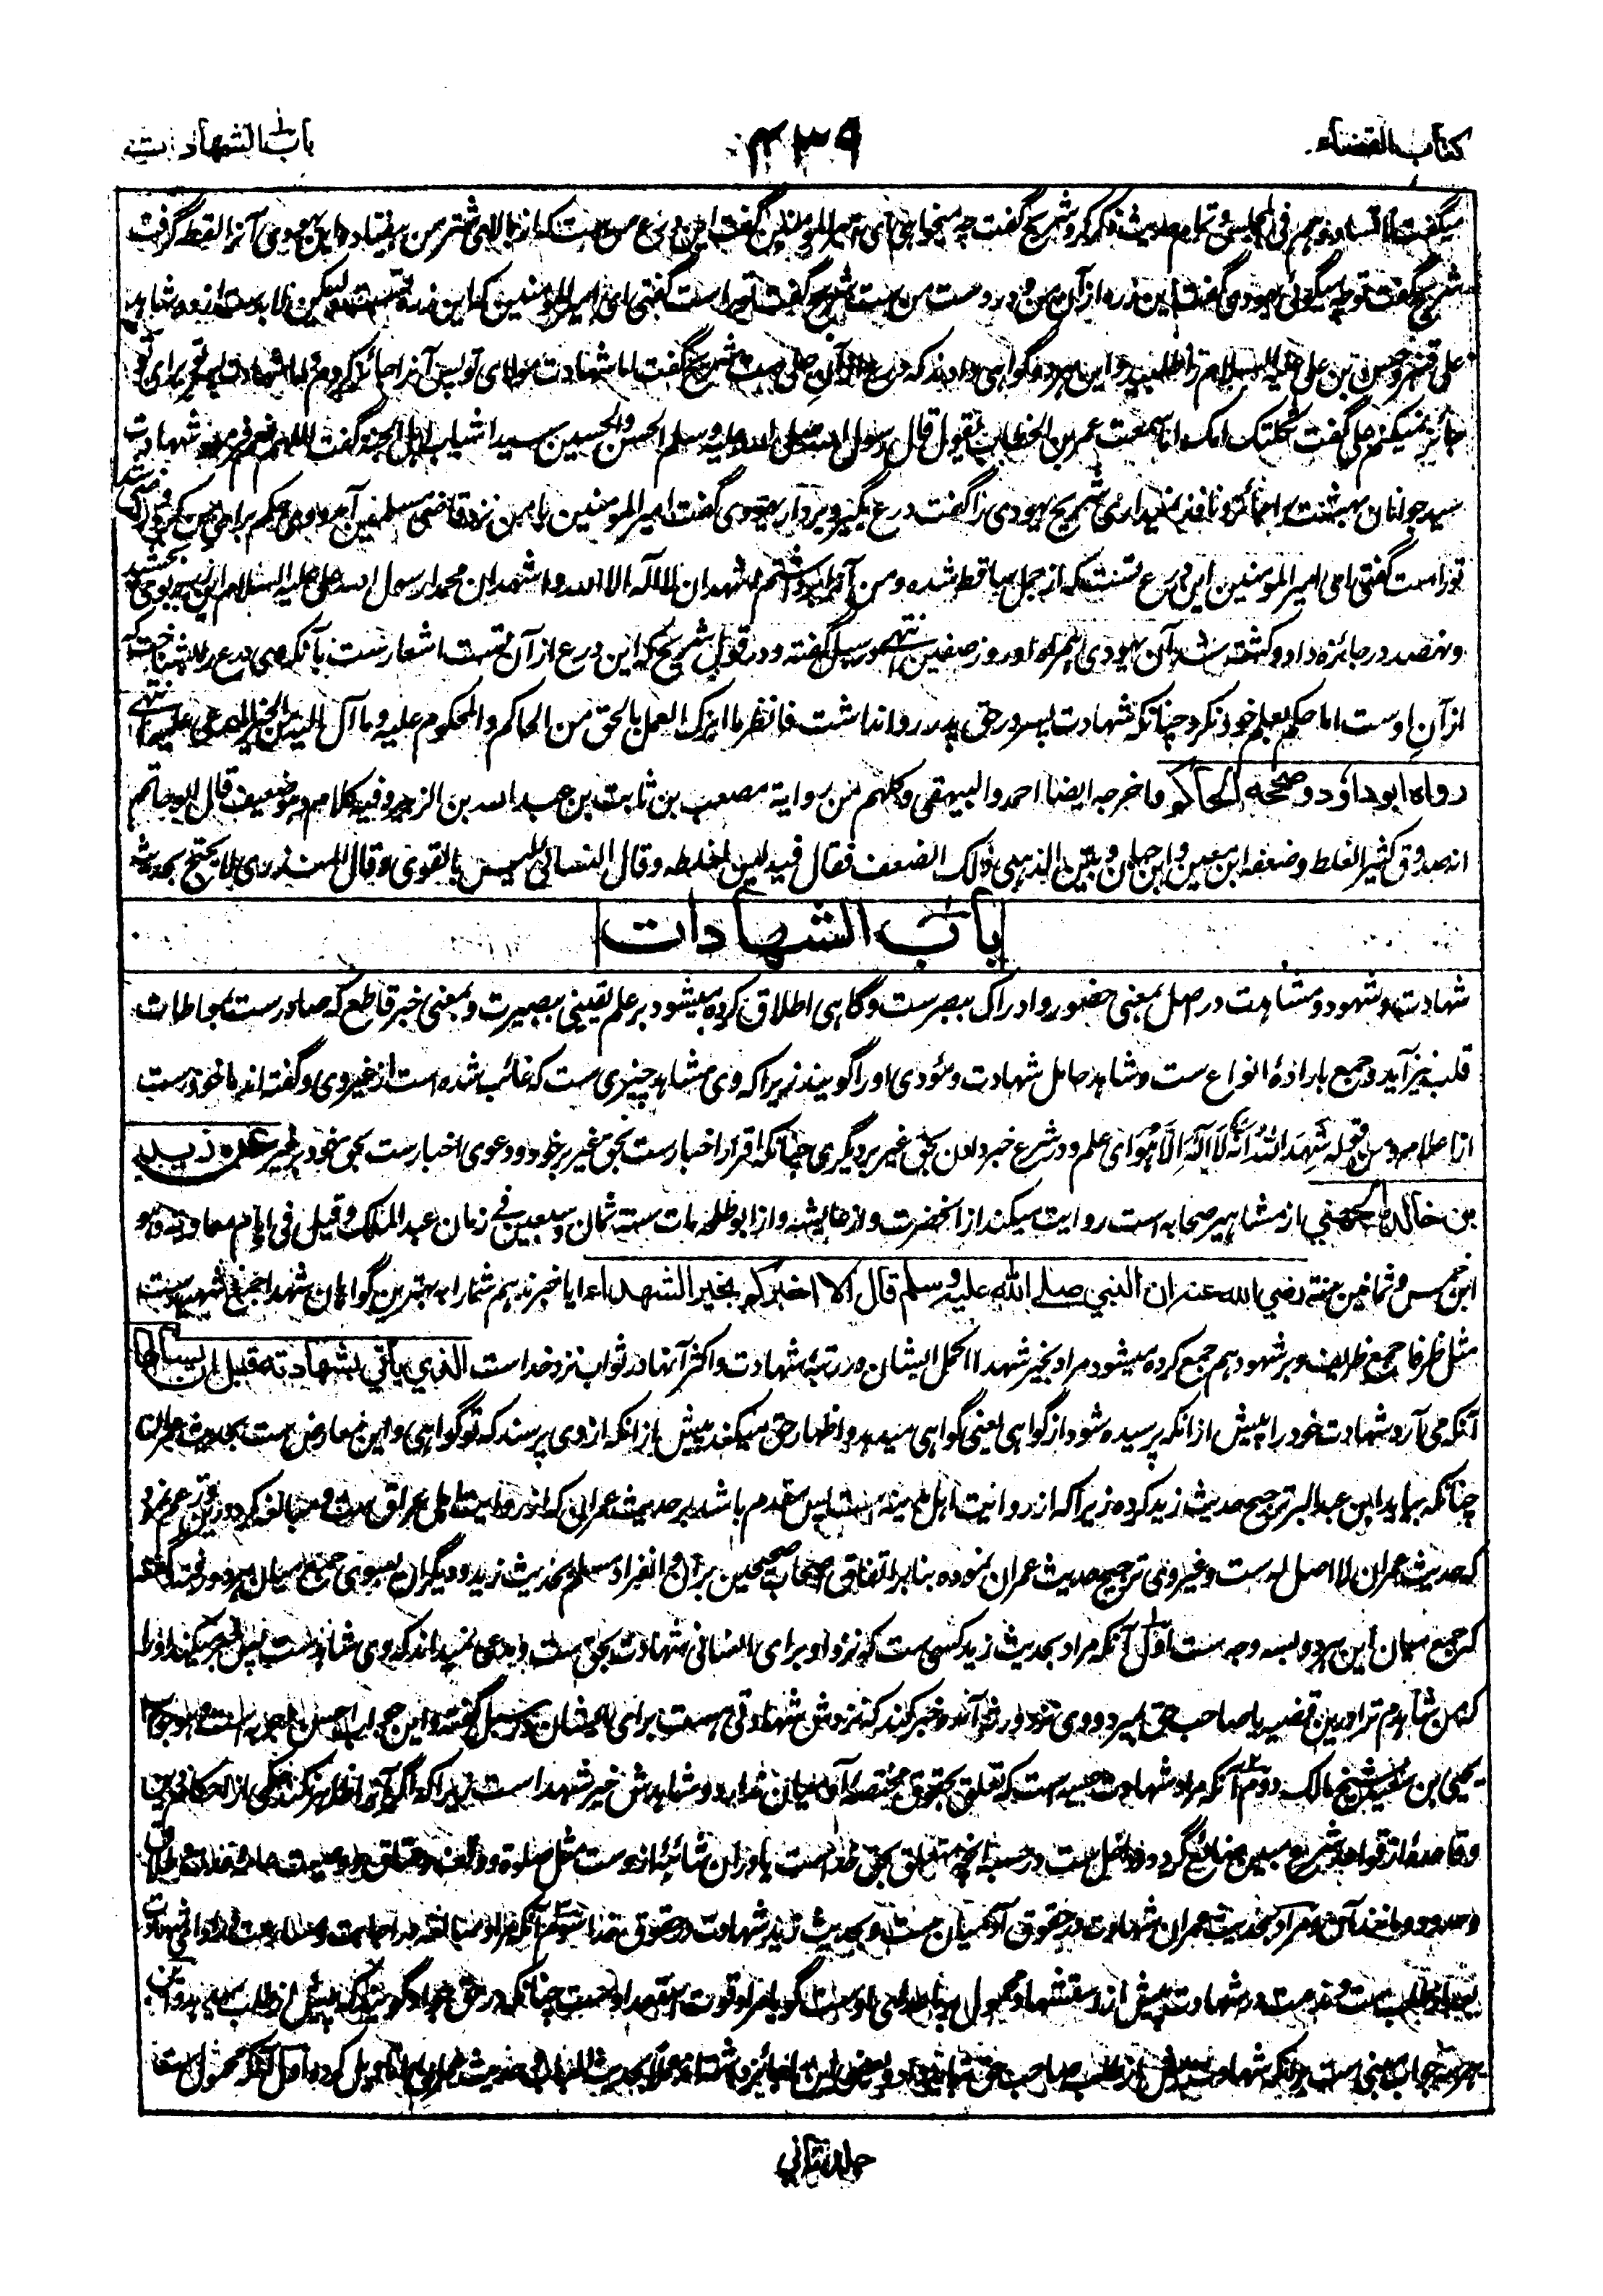 کتاب القضاء
۴۳۹
باب الشهادات
میگفت لا تساووهم فی المجالس و تمام حدیث ذکر کرد شریح گفت چه میخواهی ای امیرالمومنین گفت این درع من ست که از بالای شتر من بیفتاد و این یهودی آنرا لقطه گرفت
شریح گفت تو چه میگوئی یهودی گفت این زره از آن من و در دست من ست شریح گفت راست گفتی ای امیرالمومنین که این زره تست ولیکن لابدست از دو شاهد
علی قنبر و حسن بن علی علیه السلام را طلبید و این هر دو گواهی دادند که درع از آن علی ست شریح گفت اما شهادت مولای تو پس آنرا جائز کردم و اما شهادت پسر تو برای تو
جائز نمیکنم علی گفت ثکلتک امک اما سمعت عمر بن الخطاب یقول قال رسول الله صلی الله علیه وسلم الحسن والحسین سیدا شباب اهل الجنة گفت اللهم نعم فرمود شهادت
سید جوانان بهشت را جائز و نافذ نمیداری شریح یهودی را گفت درع بگیر و بردار یهودی گفت امیرالمومنین با من نزد قاضی مسلمین آمد و وی حکم برای من کرد و راضی شد
تو راست گفتی ای امیرالمومنین این درع تست که از جمل ساقط شده و من آنرا برداشتم اشهد ان لا اله الا الله و اشهد ان محمدا رسول الله علی علیه السلام این زره بوی بخشید
و نهصد در جائزه داد و کشته شد آن یهودی همراه او روز صفین انتهی در سبل گفته و در قول شریح که این درع از آن تست اشعارست بآنکه وی درع را شناخت که
از آن اوست اما حکم بعلم خود نکرد چنانکه شهادت پسر در حق پدر روا نداشت فانظر ما ابرک العمل بالحق من الحاکم والمحکوم علیه وما آل الیه من الخیر للمدعی علیه انتهی
رواه ابو داود وصححه الحاکم واخرجه ایضا احمد والبیهقی وکلهم من روایة مصعب بن ثابت بن عبد الله بن الزبیر وفیه کلام وهو ضعیف قال ابو حاتم
انه صدوق کثیر الغلط وضعفه ابن معین وابن حبان وبین الذهبی ذلک الضعف فقال فیه لین لغلطه وقال النسائی لیس بالقوی وقال المنذری لا یحتج بحدیثه
باب الشهادات
شهادت و شهود و مشاهدت در اصل بمعنی حضور و ادراک ببصرست و گاهی اطلاق کرده میشود بر علم یقینی ببصیرت و بمعنی خبر قاطع که صادرست بمواطات
قلب نیز آید و جمع باراده انواع ست و شاهد حامل شهادت و مودی او را گویند زیراکه وی مشاهد چیزی ست که غائب شده است از غیر وی و گفته اند ماخوذست
از اعلام ومن قوله شَهِدَ اللهُ اَنَّهُ لَا اِلهَ اِلَّا هُوَ ای علم و در شرع خبر دادن بحق غیر بر دیگری چنانکه اقرار اخبارست بحق غیر بر خود و دعوی اخبارست بحق خود بر غیر عن زید
بن خالد الجهنی از مشاهیر صحابه است روایت میکند از آنحضرت و از عائشه و از ابو طلحه مات سنة ثمان و سبعین فی زمان عبد الملک وقیل فی ایام معاویة وهو
ابن خمس وثمانین سنة رضی الله عنه ان النبی صلے الله علیه وسلم قال الا اخبرکم بخیر الشهداء ایا خبر ندهم شما را به بهترین گواهان شهدا جمع شهیدست
مثل ظرفا جمع ظریف و بر شهود هم جمع کرده میشود مراد بخیر شهدا اکمل ایشان در رتبه شهادت و اکثر آنها در ثواب نزد خداست الذی یاتی بشهادته قبل ان یسالها
آنکه می آرد شهادت خود را پیش از انکه پرسیده شود از گواهی یعنی گواهی میدهد و اظهار حق میکند پیش از انکه از وی پرسند که تو گواهی و این معارض ست بحدیث عمران
چنانکه بیاید ابن عبد البر ترجیح حدیث زید کرده زیراکه از روایت اهل مدینه است پس مقدم باشد بر حدیث عمران که از روایت اهل عراق ست و مبالغه کرده و زعم نموده
که حدیث عمران لا اصل له ست و غیر وی ترجیح حدیث عمران نموده بنابر اتفاق اصحاب صحیحین بر آن و انفراد مسلم بحدیث زید و دیگران بسوی جمع میان هر دو رفته گفته اند
که جمع میان این هر دو بسه وجه ست اول آنکه مراد بحدیث زید کسی ست که نزد او برای انسانی شهادت بحق ست و مدعی نمیداند که وی شاهدست پس خبر میکند او را
که من شاهدم ترا درین قضیه یا صاحب حق میرد و وی نزد ورثه آید و خبر کند که نزدش شهادتی هست برای ایشان در سبل گفته و این جواب احسن اجوبه است و هو جواب
یحیی بن سعید شیخ مالک دوم آنکه مراد شهادت حسبه است که تعلق بحقوق مختصه آدمیان ندارد و شاهدش خیر شهداست زیراکه اگر آنرا اظهار نکند حکمی از احکام دین
و قاعده از قواعد شرع مبین ضائع گردد و داخل ست در حسبه آنچه متعلق بحق خداست یا در ان شائبه ازوست مثل صلوة و وقف و عتاق و وصیت عامه و عدت و طلاق
و حدود و مانند آن و مراد بحدیث عمران شهادت در حقوق آدمیان ست و بحدیث زید شهادت در حقوق خدا سوم آنکه مراد مبالغه در اجابت و مسارعت